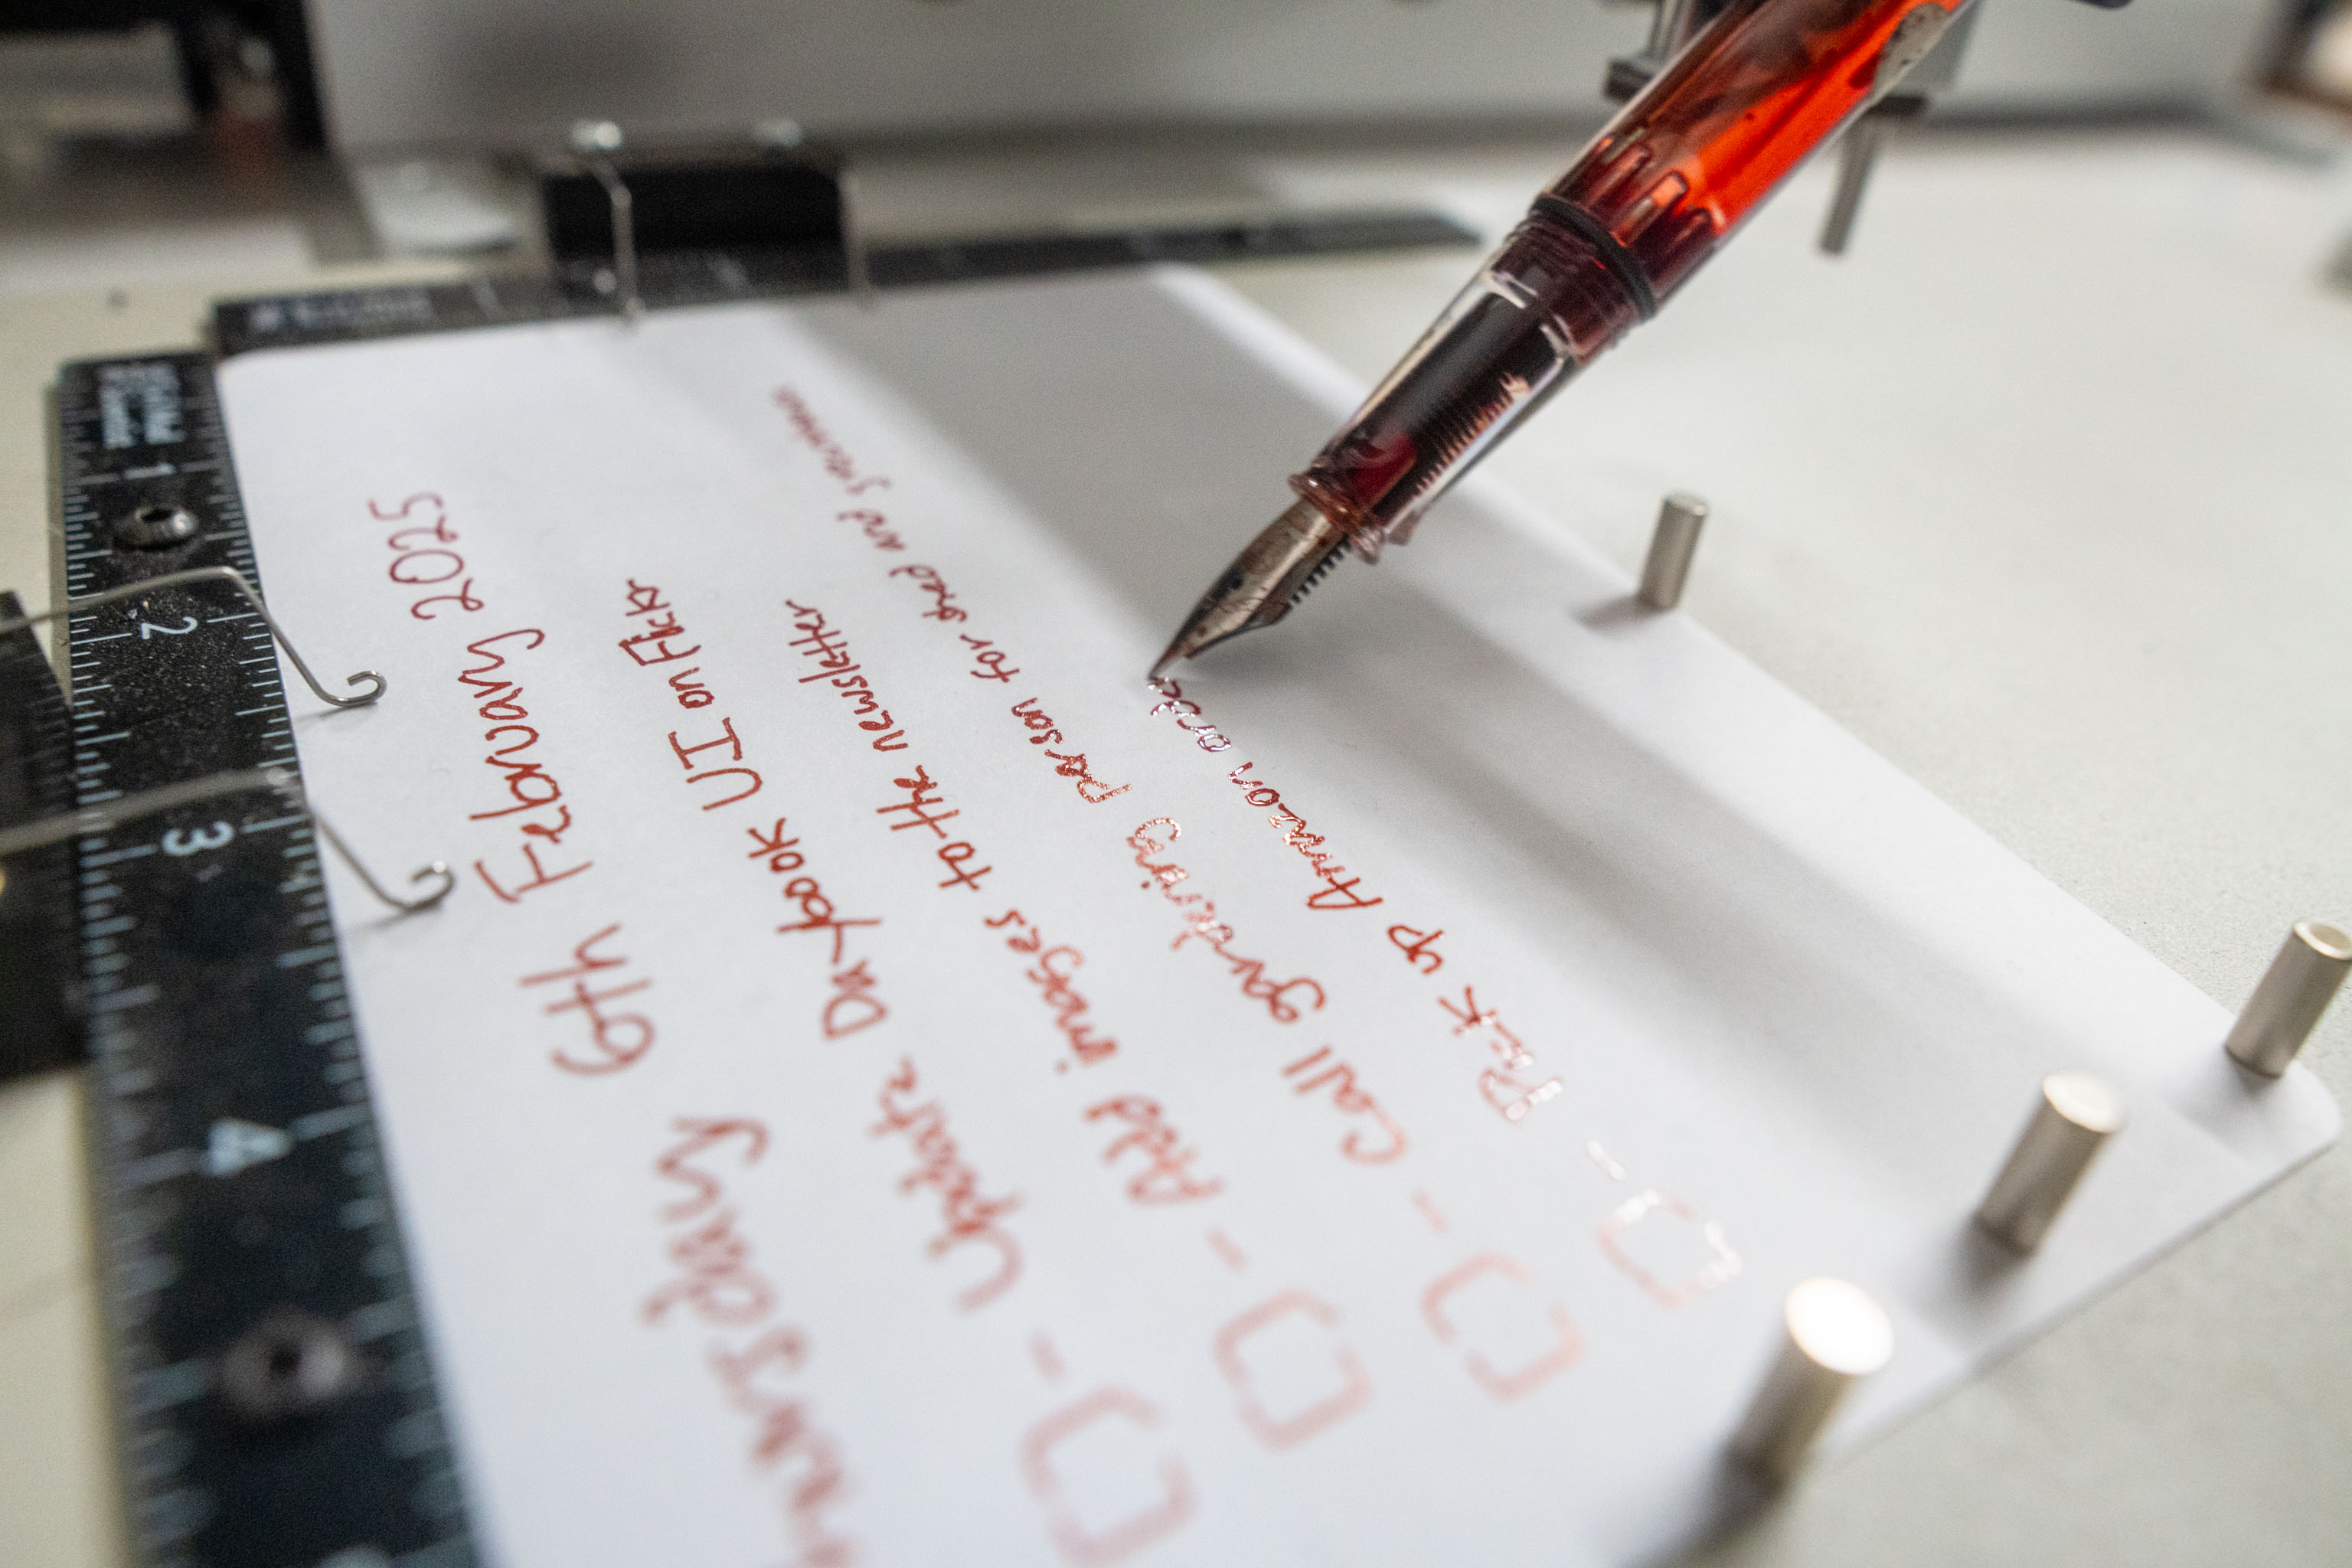 Thursday 6th February 2025
- Update Daybook UI on Flickr
- Add images to the newsletter
- Call gardening person for shed and
- Pick up Amazon orde
1
2
3
4